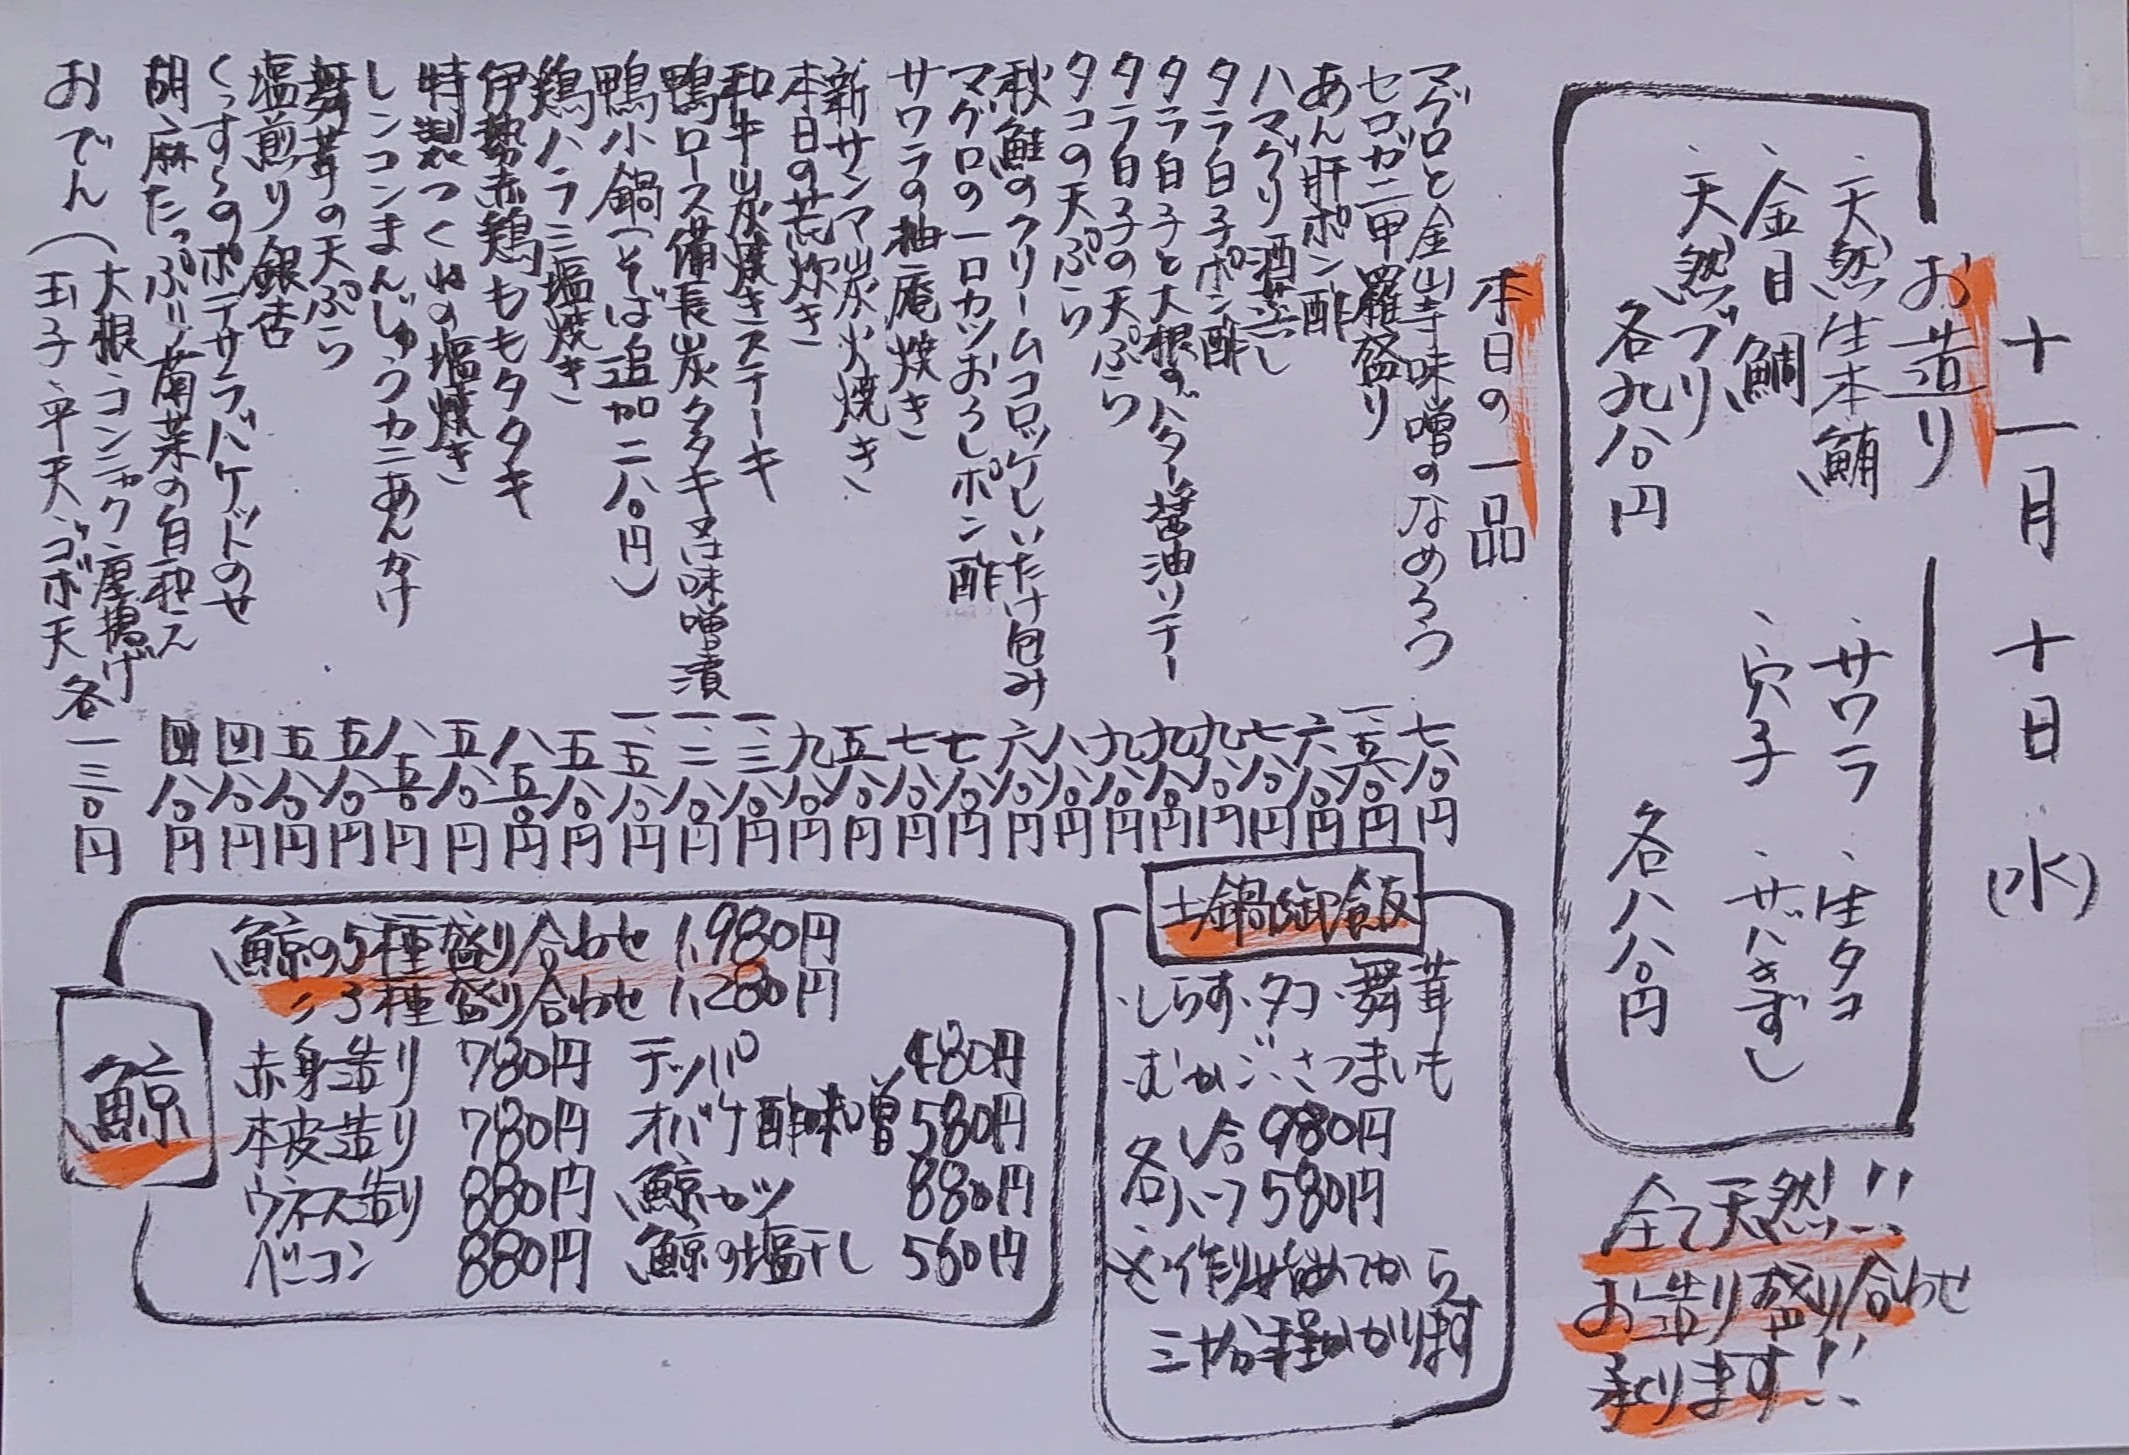 十一月十日(水)
お造り
・天然生本鮪
・金目鯛
・天然ブリ
各九八〇円
・サワラ・生タコ
・穴子・サバきずし
各八八〇円
全て天然!!
お造り盛り合わせ
承ります!!
本日の一品
マグロと金山寺味噌のなめろう 七八〇円
セコガニ甲羅盛り 一、五八〇円
あん肝ポン酢 六八〇円
ハマグリ酒蒸し 七八〇円
タラ白子ポン酢 九八〇円
タラ白子と大根のバター醤油ソテー 九八〇円
タラ白子の天ぷら 九八〇円
タコの天ぷら 八八〇円
秋鮭のクリームコロッケしいたけ包み 六八〇円
マグロの一口カツおろしポン酢 七八〇円
サワラの柚庵焼き 七八〇円
新サンマ炭火焼き 五八〇円
本日の荒炊き 九八〇円
和牛炭焼きステーキ 一、三八〇円
鴨ロース備長炭タタキ又は味噌漬 一、二八〇円
鴨小鍋(そば追加二八〇円) 一、五八〇円
鶏ハラミ塩焼き 五八〇円
伊勢赤鶏ももタタキ 八五〇円
特製つくねの塩焼き 五八〇円
レンコンまんじゅうカニあんかけ 八五〇円
舞茸の天ぷら 五八〇円
塩煎り銀杏 五八〇円
くんすらのポテサラバケドのせ 四八〇円
胡麻たっぷり菊菜の白和え 四八〇円
おでん(大根・コンニャク・厚揚げ
玉子・平天・ゴボ天 各一三〇円
土鍋御飯
・しらす・タコ・舞茸
・むかご・さつまいも
各一合 980円
各ハーフ 580円
※作り始めてから
三十分程かかります
鯨
鯨の5種盛り合わせ 1,980円
〃3種盛り合わせ 1,280円
赤身造り 780円 テッパ 480円
本皮造り 780円 オバケ酢味噌 580円
ウネス造り 880円 鯨カツ 880円
ベーコン 880円 鯨の塩干し 560円